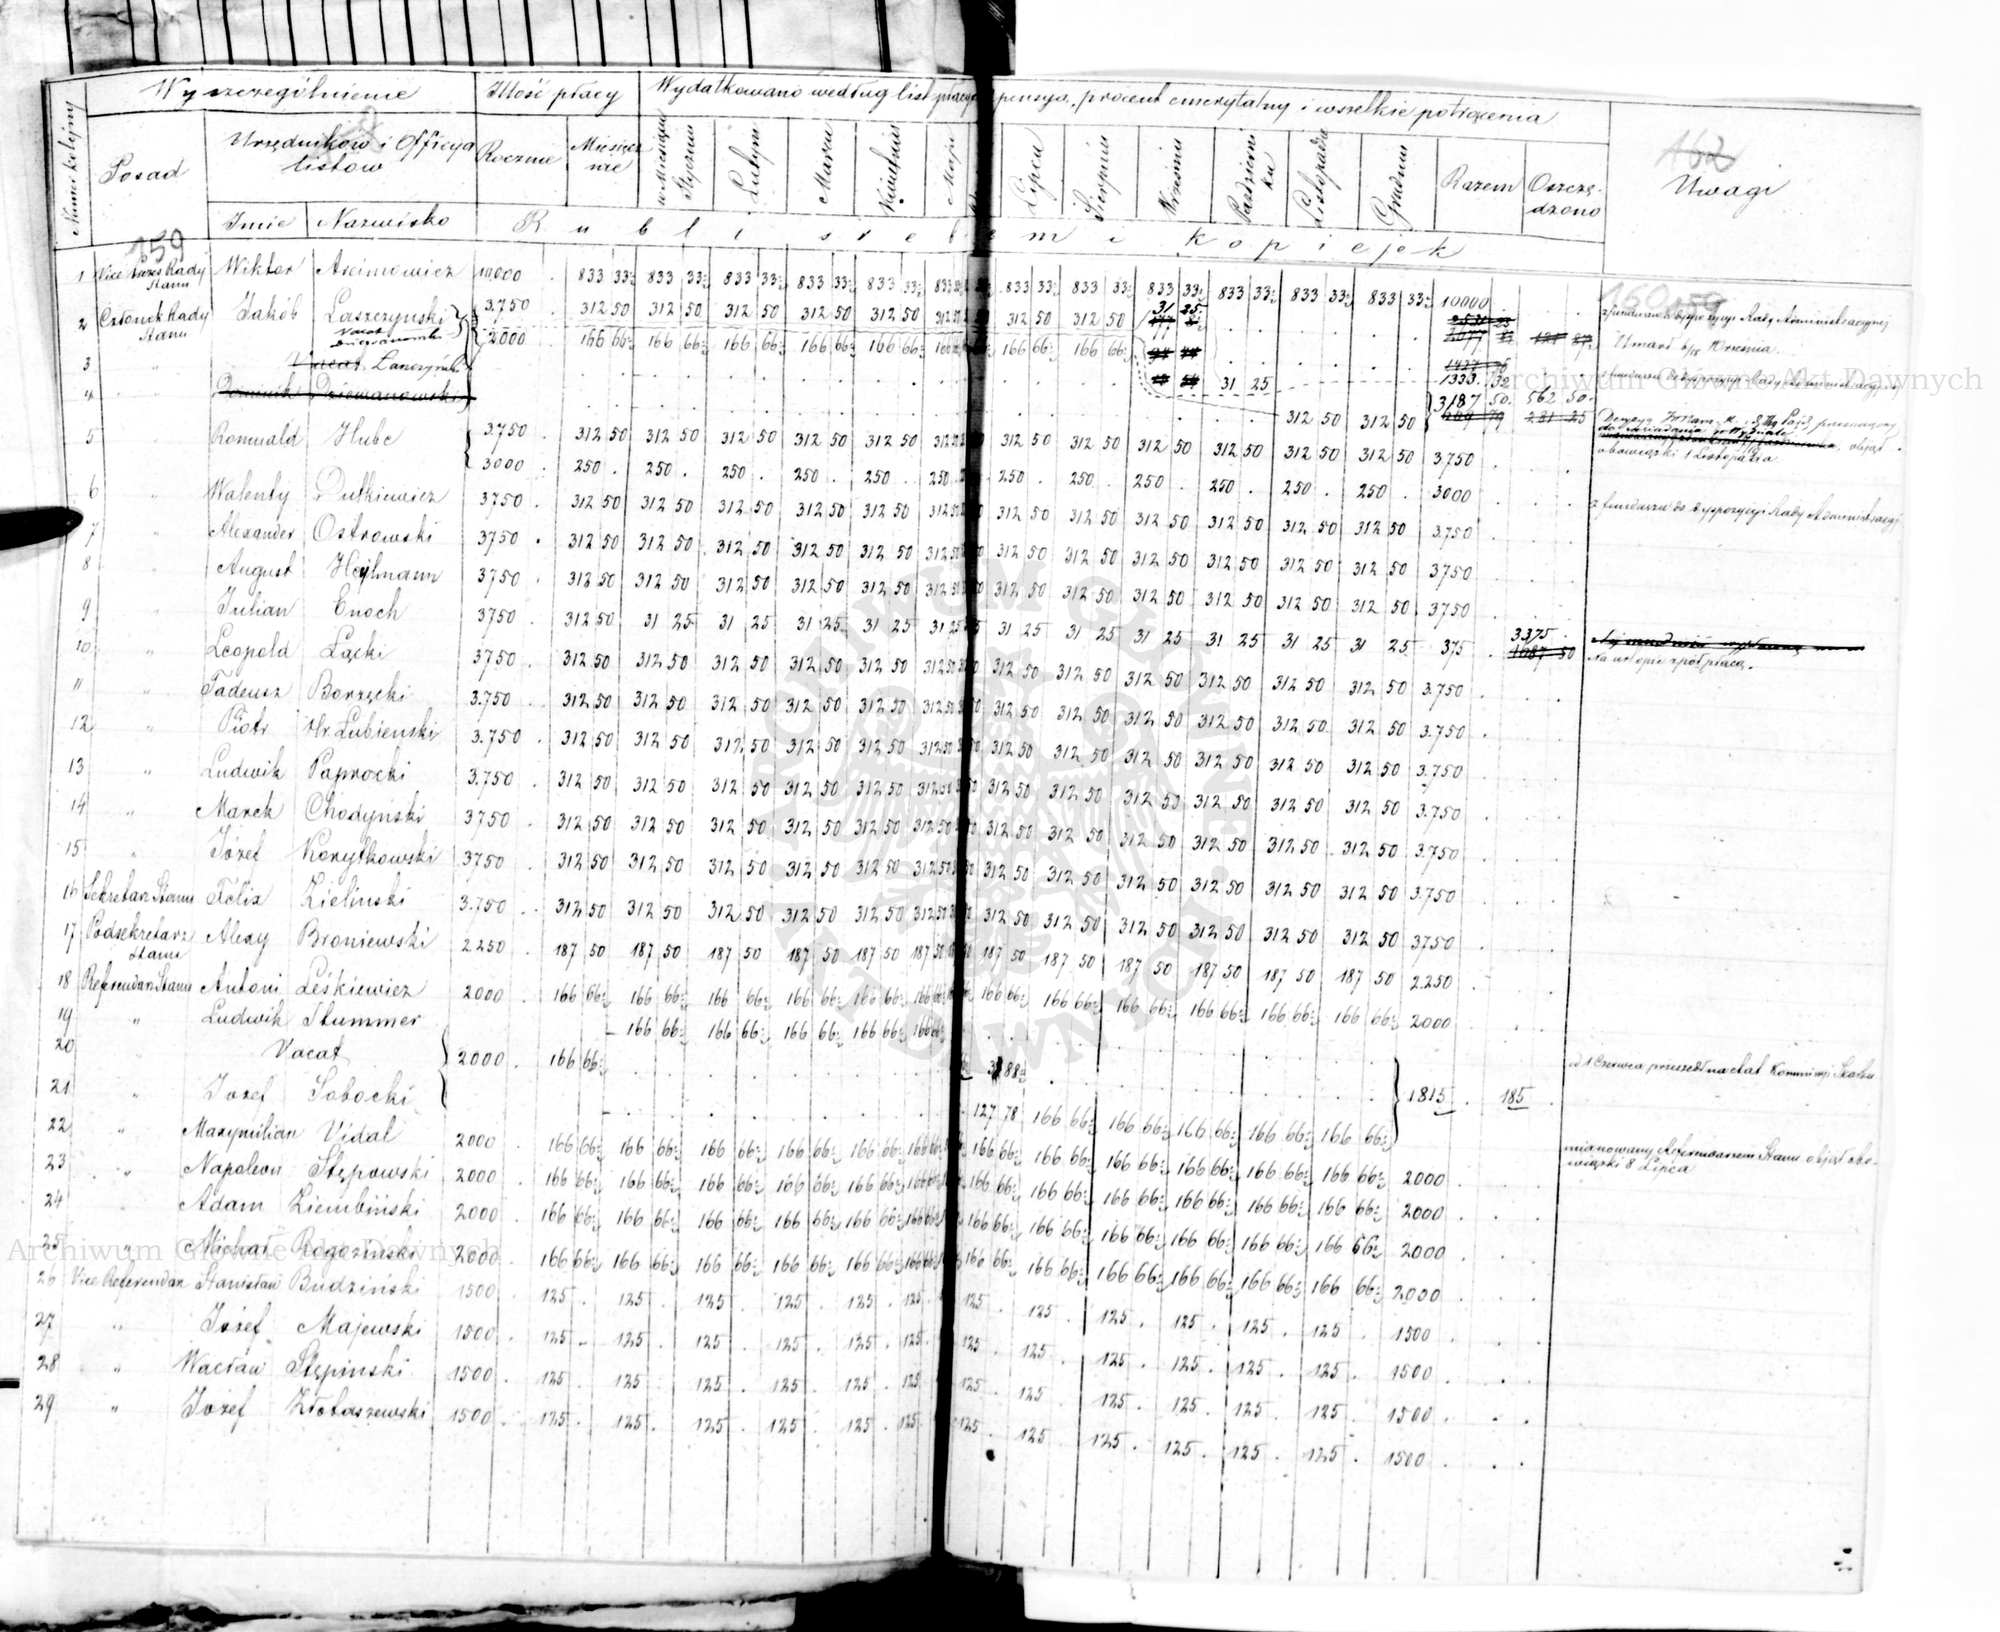 Wyszczególnienie Ilość płacy Wydatkowano według list płacy pensya, procent emerytalny i wszelkie potrącenia
Numer kolejny Posad Urzędników i Officya Rocznie Miesięcz w Miesiącu Lutym Marcu Kwietniu Maju Lipcu Sierpniu Wrześniu Październi Listopadzie Grudniu Razem Oszczę- 162
listów nie Styczniu ku dzono Uwagi
Imie Nazwisko R u b l i s r e b r e m i k o p i e j e k
159
1 Vice Prezes Rady Stanu Wiktor Arcimowicz 10000 . 833 33 833 33 833 33 833 33 833 33 833 33 833 33 833 33 833 33 833 33 833 33 10000
160 159
2 Członek Rady Stanu Jakób Łaszczyński 3.750 . 312 50 312 50 312 50 312 50 312 50 312 50 312 50 31 25 z funduszu do dyspozycyi Rady Administracyjnej
Vacat 2000 166 66 166 66 166 66 166 66 166 66 166 66 166 66 Umarł Września.
3 " Vacat Łaszczyński 1333 32
4 " Dominik Dziewanowski 31 25 312 50 312 50 3187 50 562 50
5 " Romuald Hube 3.750 . 312 50 312 50 312 50 312 50 312 50 312 50 312 50 312 50 312 50 312 50 312 50 312 50 3.750 obowiązki 1 Listopada
3000 . 250 . 250 . 250 . 250 . 250 . 250 250 . 250 . 250 . 250 . 250 . 250 . 3000 z funduszu do dyspozycyi Rady Administracyj
6 " Walenty Dutkiewicz 3750 . 312 50 312 50 312 50 312 50 312 50 312 50 312 50 312 50 312 50 312 50 312 50 312 50 3.750
7 " Alexander Ostrowski 3750 . 312 50 312 50 312 50 312 50 312 50 312 50 312 50 312 50 312 50 312 50 312 50 312 50 3750
8 " August Heylmann 3750 . 312 50 312 50 312 50 312 50 312 50 312 50 312 50 312 50 312 50 312 50 312 50 312 50 3750
9 " Julian Enoch 3750 . 312 50 31 25 31 25 31 25 31 25 31 25 31 25 31 25 31 25 31 25 31 25 31 25 375 . 3375 . 1687 50 Na urlopie z pół płacą.
10 " Leopold Łącki 3750 . 312 50 312 50 312 50 312 50 312 50 312 50 312 50 312 50 312 50 312 50 312 50 312 50 3.750
11 " Tadeusz Borzęcki 3.750 . 312 50 312 50 312 50 312 50 312 50 312 50 312 50 312 50 312 50 312 50 312 50 312 50 3.750
12 " Piotr Hr. Łubieński 3.750 . 312 50 312 50 312 50 312 50 312 50 312 50 312 50 312 50 312 50 312 50 312 50 312 50 3.750
13 " Ludwik Paprocki 3.750 . 312 50 312 50 312 50 312 50 312 50 312 50 312 50 312 50 312 50 312 50 312 50 312 50 3.750
14 " Marek Chodyński 3750 . 312 50 312 50 312 50 312 50 312 50 312 50 312 50 312 50 312 50 312 50 312 50 312 50 3.750
15 " Józef Korytkowski 3750 . 312 50 312 50 312 50 312 50 312 50 312 50 312 50 312 50 312 50 312 50 312 50 312 50 3.750
16 Sekretarz Stanu Felix Zieliński 3.750 . 312 50 312 50 312 50 312 50 312 50 312 50 312 50 312 50 312 50 312 50 312 50 312 50 3750
17 Podsekretarz Stanu Alexy Broniewski 2.250 187 50 187 50 187 50 187 50 187 50 187 50 187 50 187 50 187 50 187 50 187 50 187 50 2.250
18 Referendarz Stanu Antoni Leśkiewicz 2000 . 166 66 166 66 166 66 166 66 166 66 166 66 166 66 166 66 166 66 166 66 166 66 166 66 2000
19 " Ludwik Stummer 166 66 166 66 166 66 166 66 166 66
20 " Vacat 2000 . 166 66 88 1815 . 185 . od 1 Czerwca przeszedł na etat Kommissyi Skarbu
21 " Jozef Sobocki 127 78 166 66 166 66 166 66 166 66 166 66
22 " Maxymilian Vidal 2000 . 166 66 166 66 166 66 166 66 166 66 166 66 166 66 166 66 166 66 166 66 166 66 166 66 2000 mianowany Referendarzem Stanu objął obo-
wiązki 8 Lipca
23 " Napoleon Stępowski 2000 . 166 66 166 66 166 66 166 66 166 66 166 66 166 66 166 66 166 66 166 66 166 66 166 66 2000
24 Adam Ziembiński 2000 . 166 66 166 66 166 66 166 66 166 66 166 66 166 66 166 66 166 66 166 66 166 66 166 66 2000
25 " Michał Rogoziński 2000 . 166 66 166 66 166 66 166 66 166 66 166 66 166 66 166 66 166 66 166 66 166 66 166 66 2000
26 Vice Referendarz Stanisław Budziński 1500 . 125 . 125 . 125 . 125 . 125 . 125 . 125 . 125 . 125 . 125 . 125 . 125 . 1500
27 " Józef Majewski 1500 . 125 . 125 . 125 . 125 . 125 . 125 . 125 . 125 . 125 . 125 . 125 . 125 . 1500
28 " Wacław Stępiński 1500 . 125 . 125 . 125 . 125 . 125 . 125 125 . 125 . 125 . 125 . 125 . 125 . 1500
29 " Józef Złotaszewski 1500 . 125 . 125 . 125 . 125 . 125 . 125 . 125 . 125 . 125 . 125 . 125 . 125 . 1500
Archiwum Główne Akt Dawnych
Archiwum Główne Akt Dawnych
ARCHIWUM GŁÓWNE AKT DAWNYCH